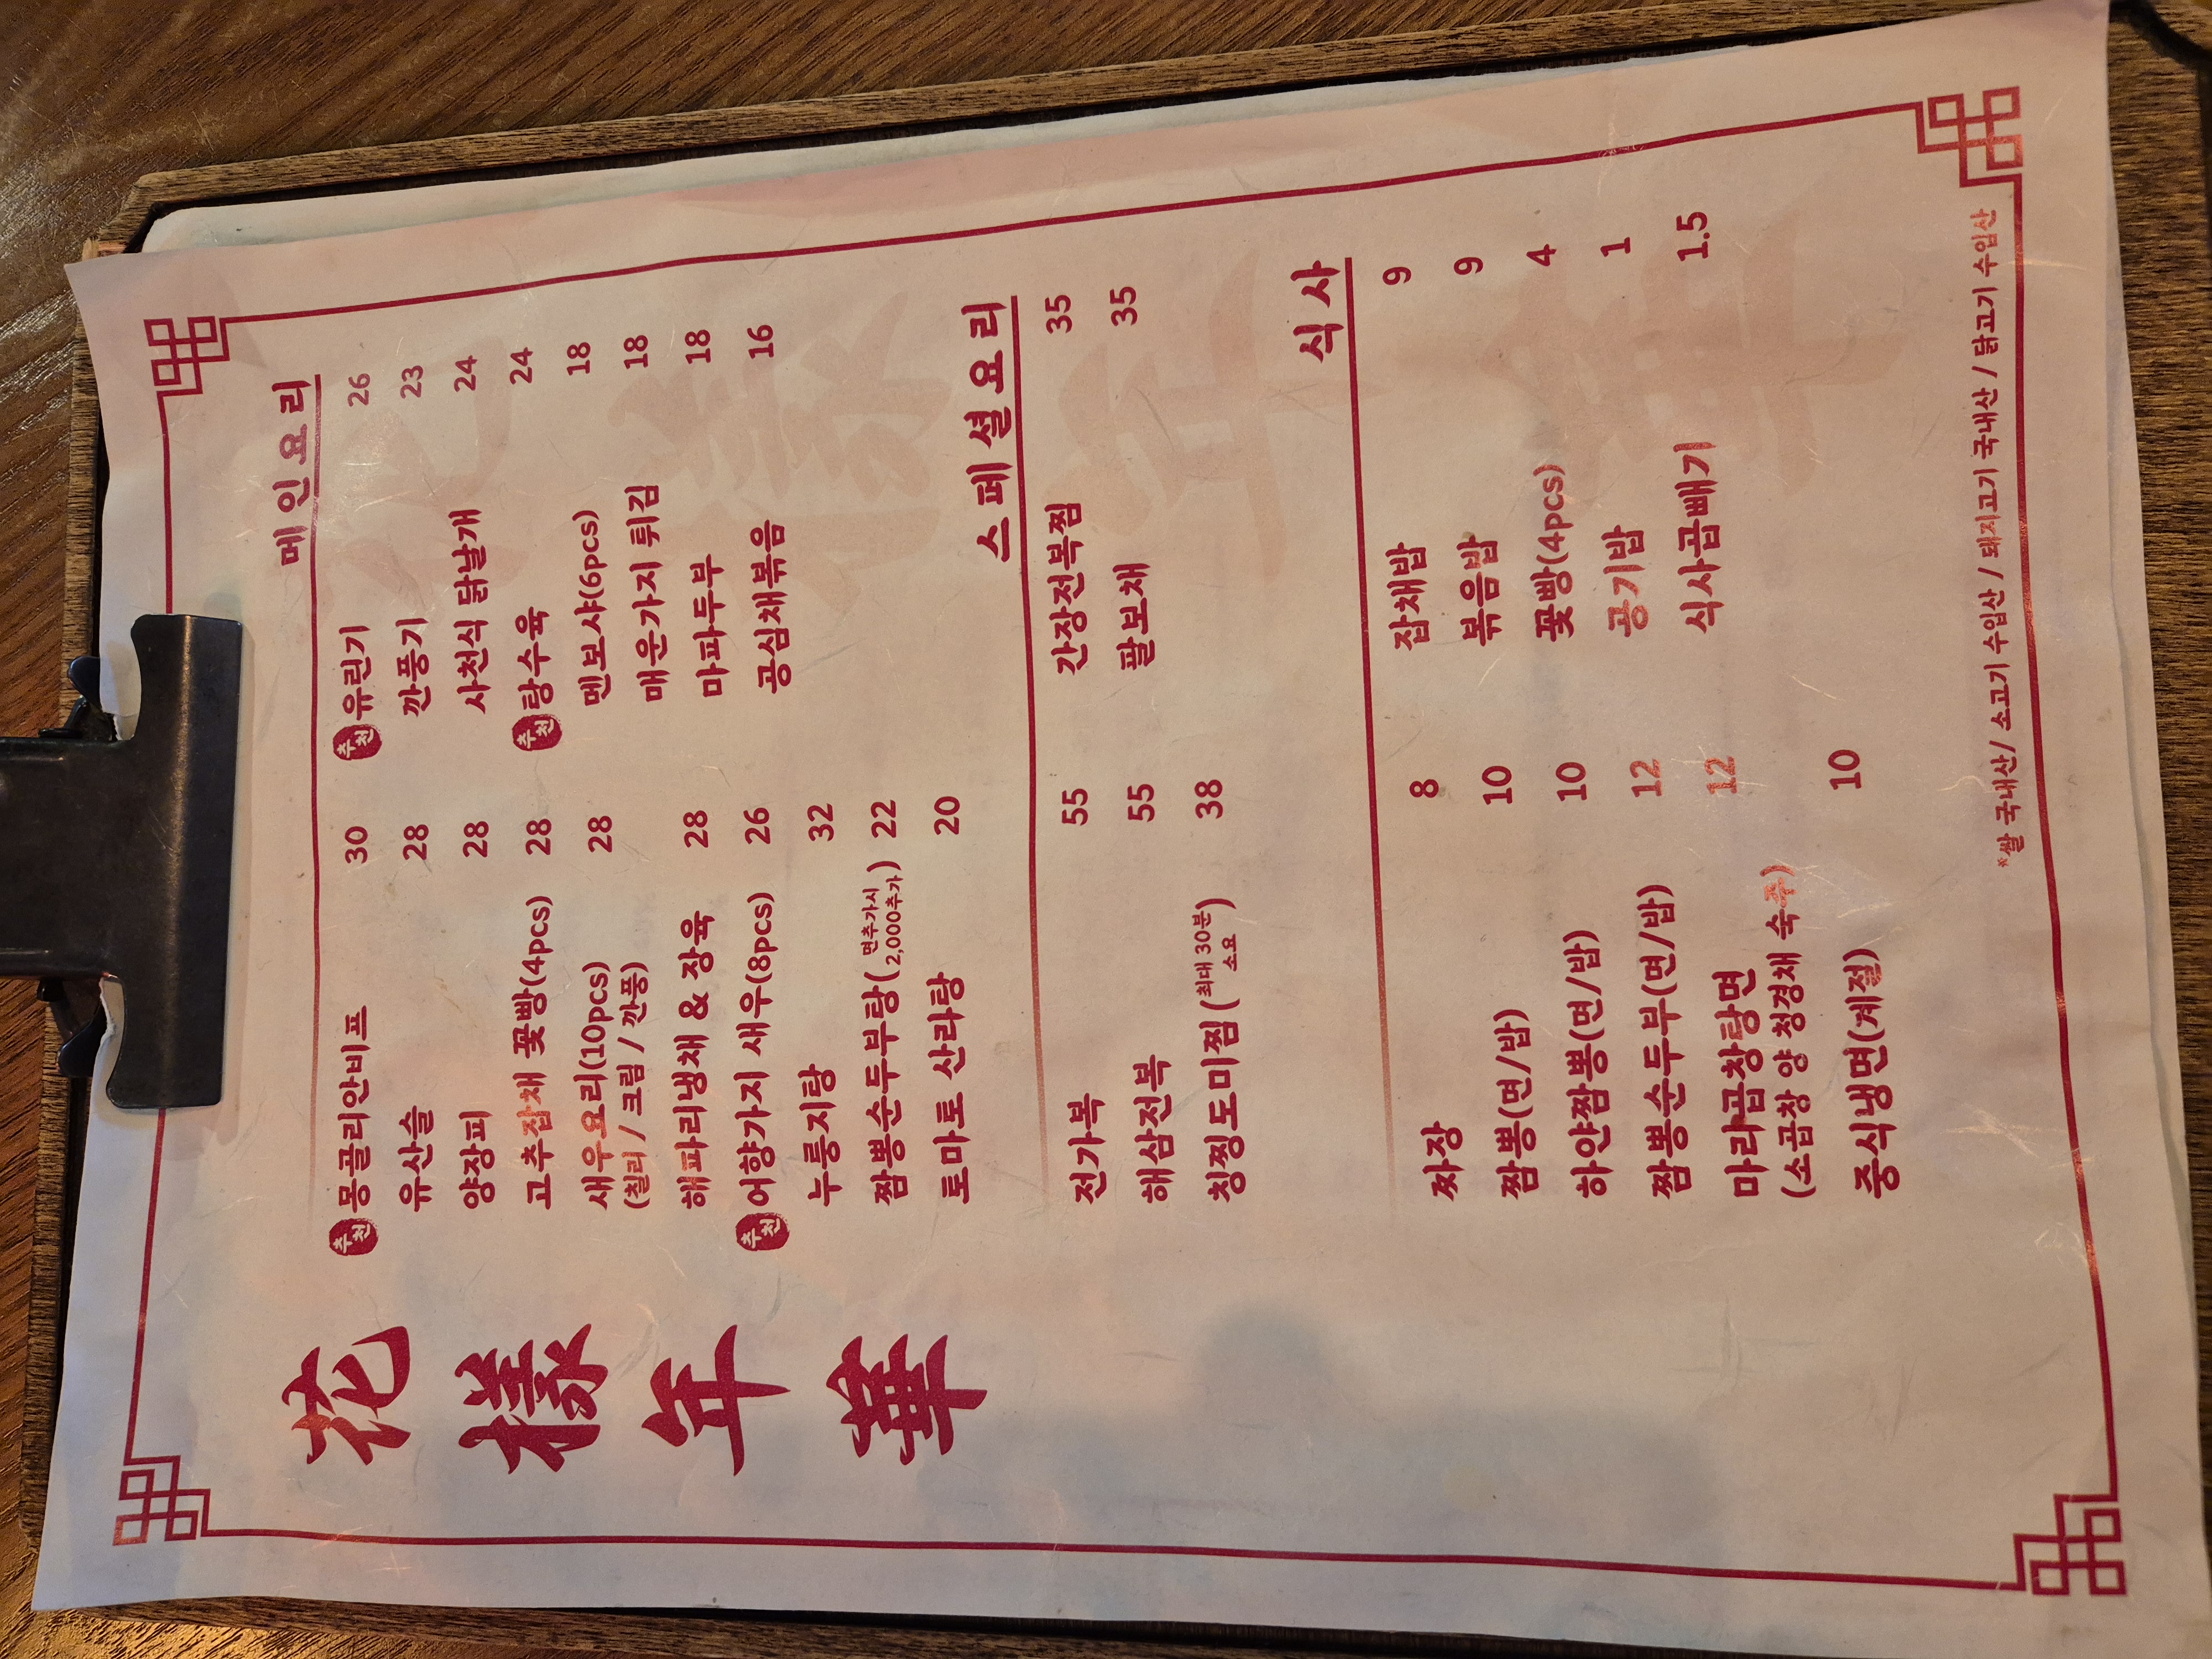 花
樣
年
華
메인요리
추천 몽골리안비프 30
유산슬 28
양장피 28
고추잡채 꽃빵(4pcs) 28
새우요리(10pcs) 28
(칠리 / 크림 / 깐풍)
해파리냉채 & 장육 28
추천 어향가지 새우(8pcs) 26
누룽지탕 32
짬뽕순두부탕(면추가시 2,000추가) 22
토마토 산라탕 20
추천 유린기 26
깐풍기 23
사천식 닭날개 24
추천 탕수육 24
멘보샤(6pcs) 18
매운가지 튀김 18
마파두부 18
공심채볶음 16
스페셜요리
전가복 55
해삼전복 55
칭찡도미찜(최대 30분 소요) 38
간장전복찜 35
팔보채 35
식사
짜장 8
짬뽕(면/밥) 10
하얀짬뽕(면/밥) 10
짬뽕순두부(면/밥) 12
마라곱창탕면 12
(소곱창 양 청경채 숙주)
중식냉면(계절) 10
잡채밥 9
볶음밥 9
꽃빵(4pcs) 4
공기밥 1
식사곱빼기 1.5
*쌀 국내산/ 소고기 수입산 / 돼지고기 국내산 / 닭고기 수입산